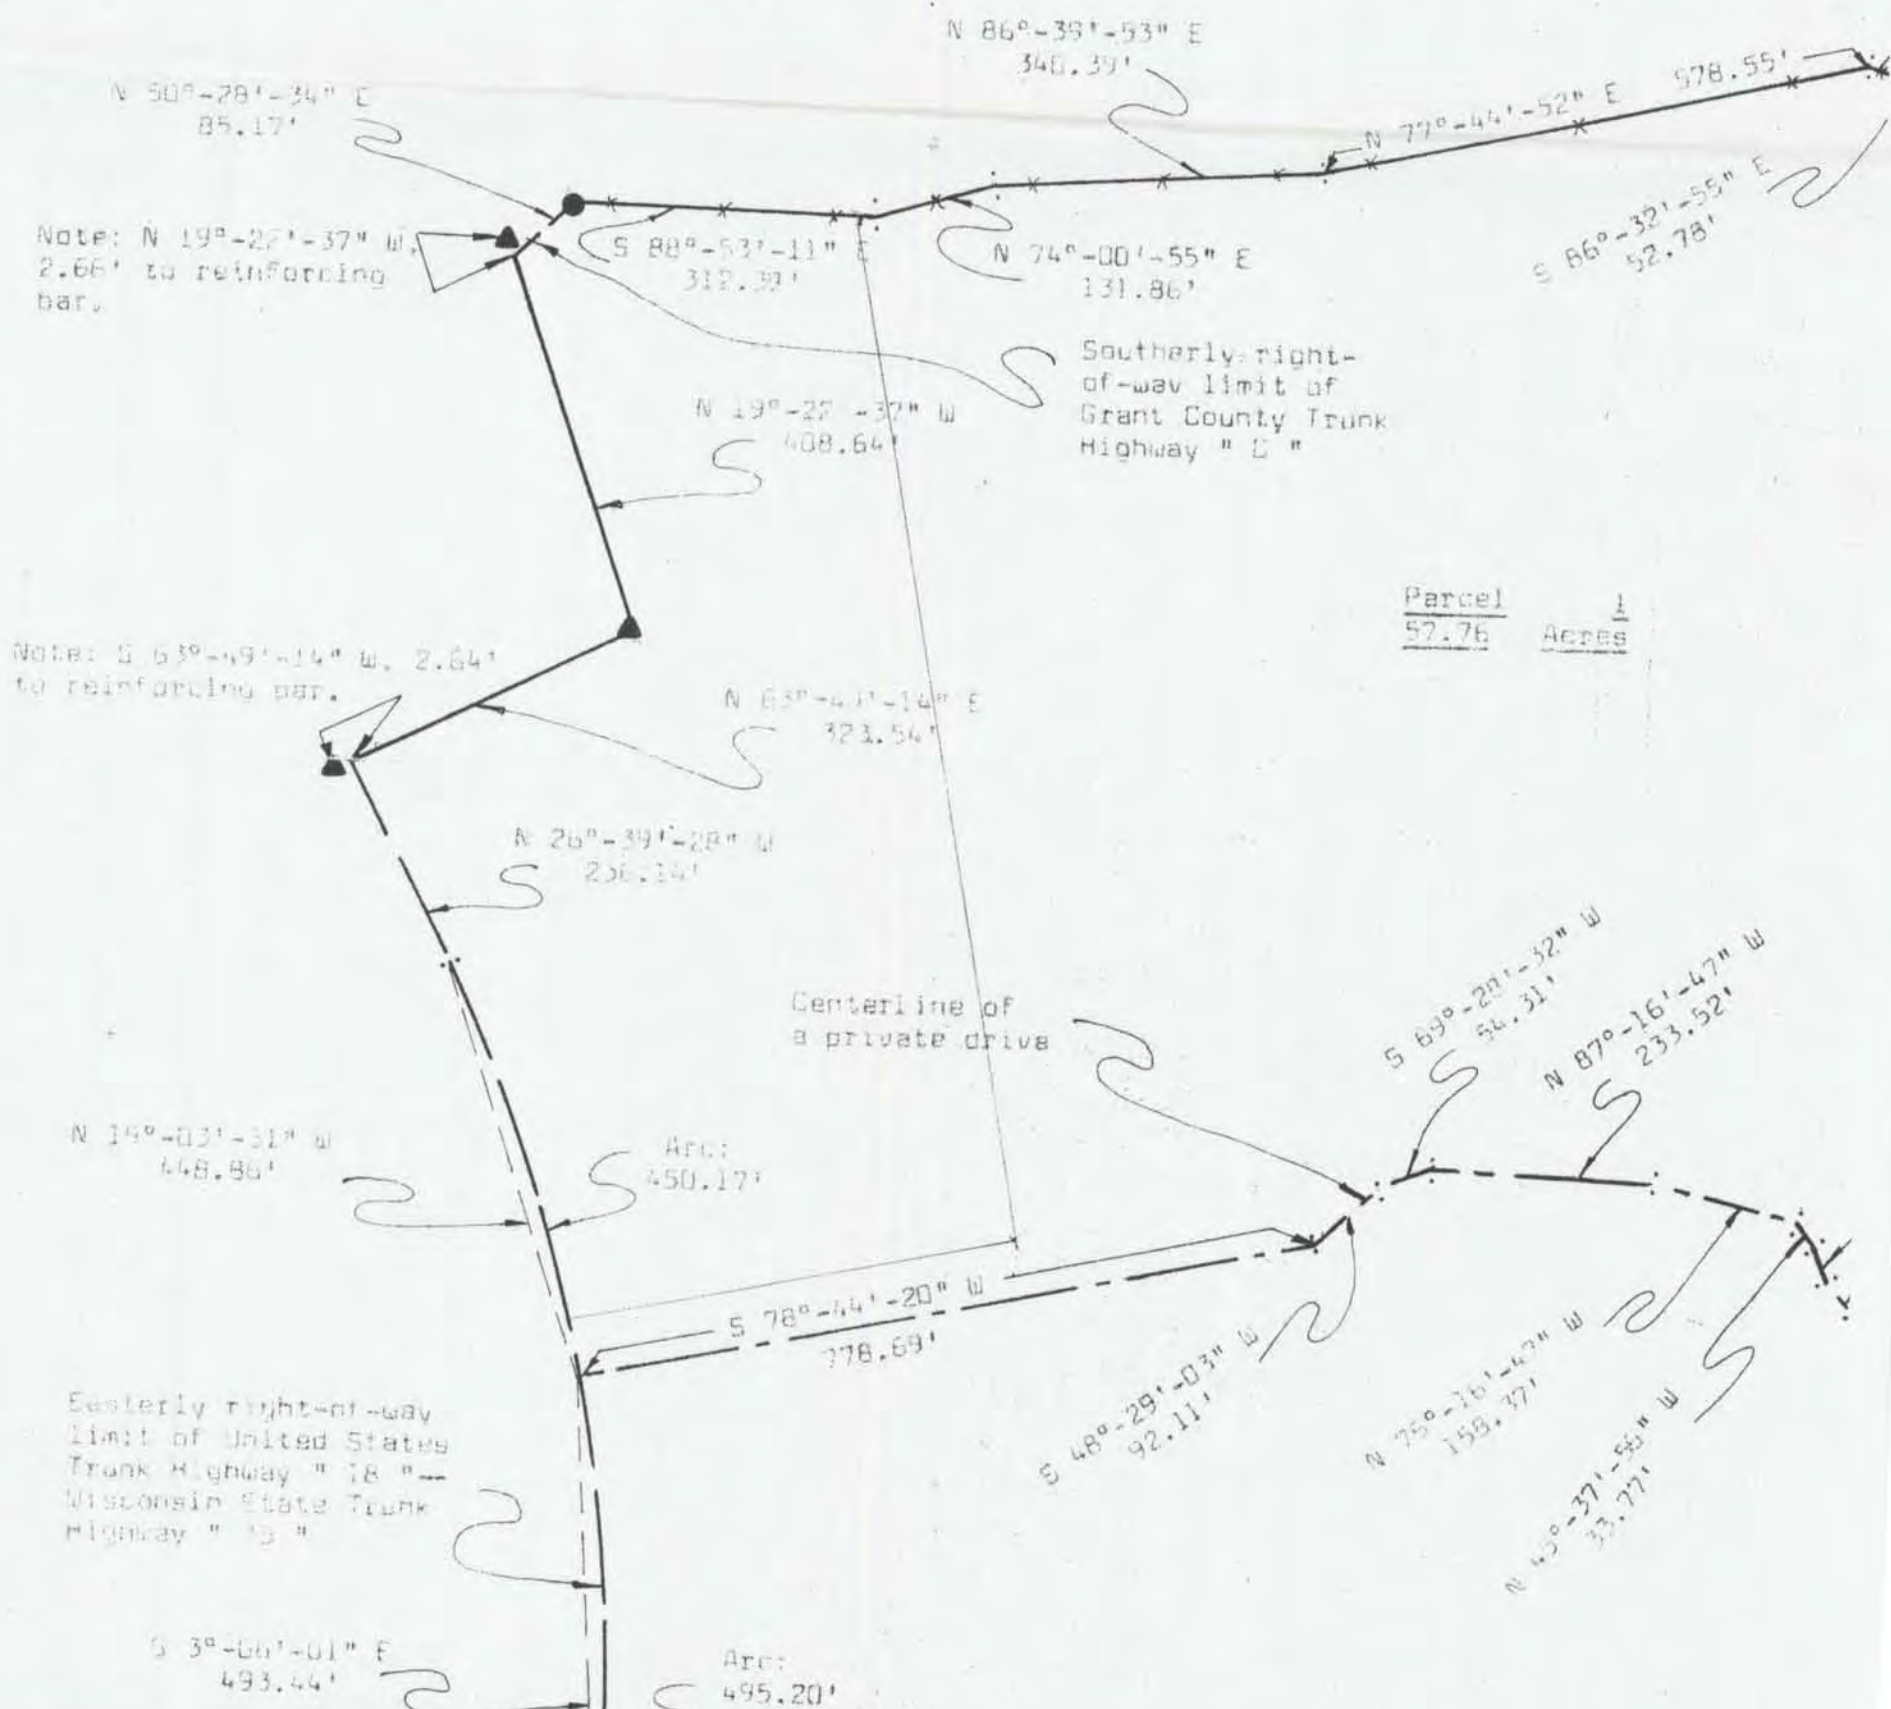 N 86°-39'-53" E
340.39'
N 50°-28'-34" E
85.17'
N 77°-44'-52" E 978.55'
S 86°-32'-55" E
52.78'
Note: N 19°-22'-37" W.
2.66' to reinforcing
bar.
S 88°-53'-11" E
312.39'
N 74°-00'-55" E
131.86'
Southerly right-
of-way limit of
Grant County Trunk
Highway " "
N 19°-22'-37" W
408.64'
Parcel 1
57.76 Acres
Note: S 63°-49'-14" W. 2.64'
to reinforcing bar.
N 63°-49'-14" E
323.54'
N 26°-39'-28" W
256.14'
Centerline of
a private drive
S 69°-20'-32" W
54.31'
N 87°-16'-47" W
233.52'
N 19°-03'-31" W
448.86'
Arc:
450.17'
S 78°-44'-20" W
778.69'
S 48°-29'-03" W
92.11'
N 75°-16'-47" W
158.37'
N 45°-37'-56" W
33.77'
Easterly right-of-way
limit of United States
Trunk Highway " 18 "--
Wisconsin State Trunk
Highway " "
S 3°-06'-01" E
493.44'
Arc:
495.20'